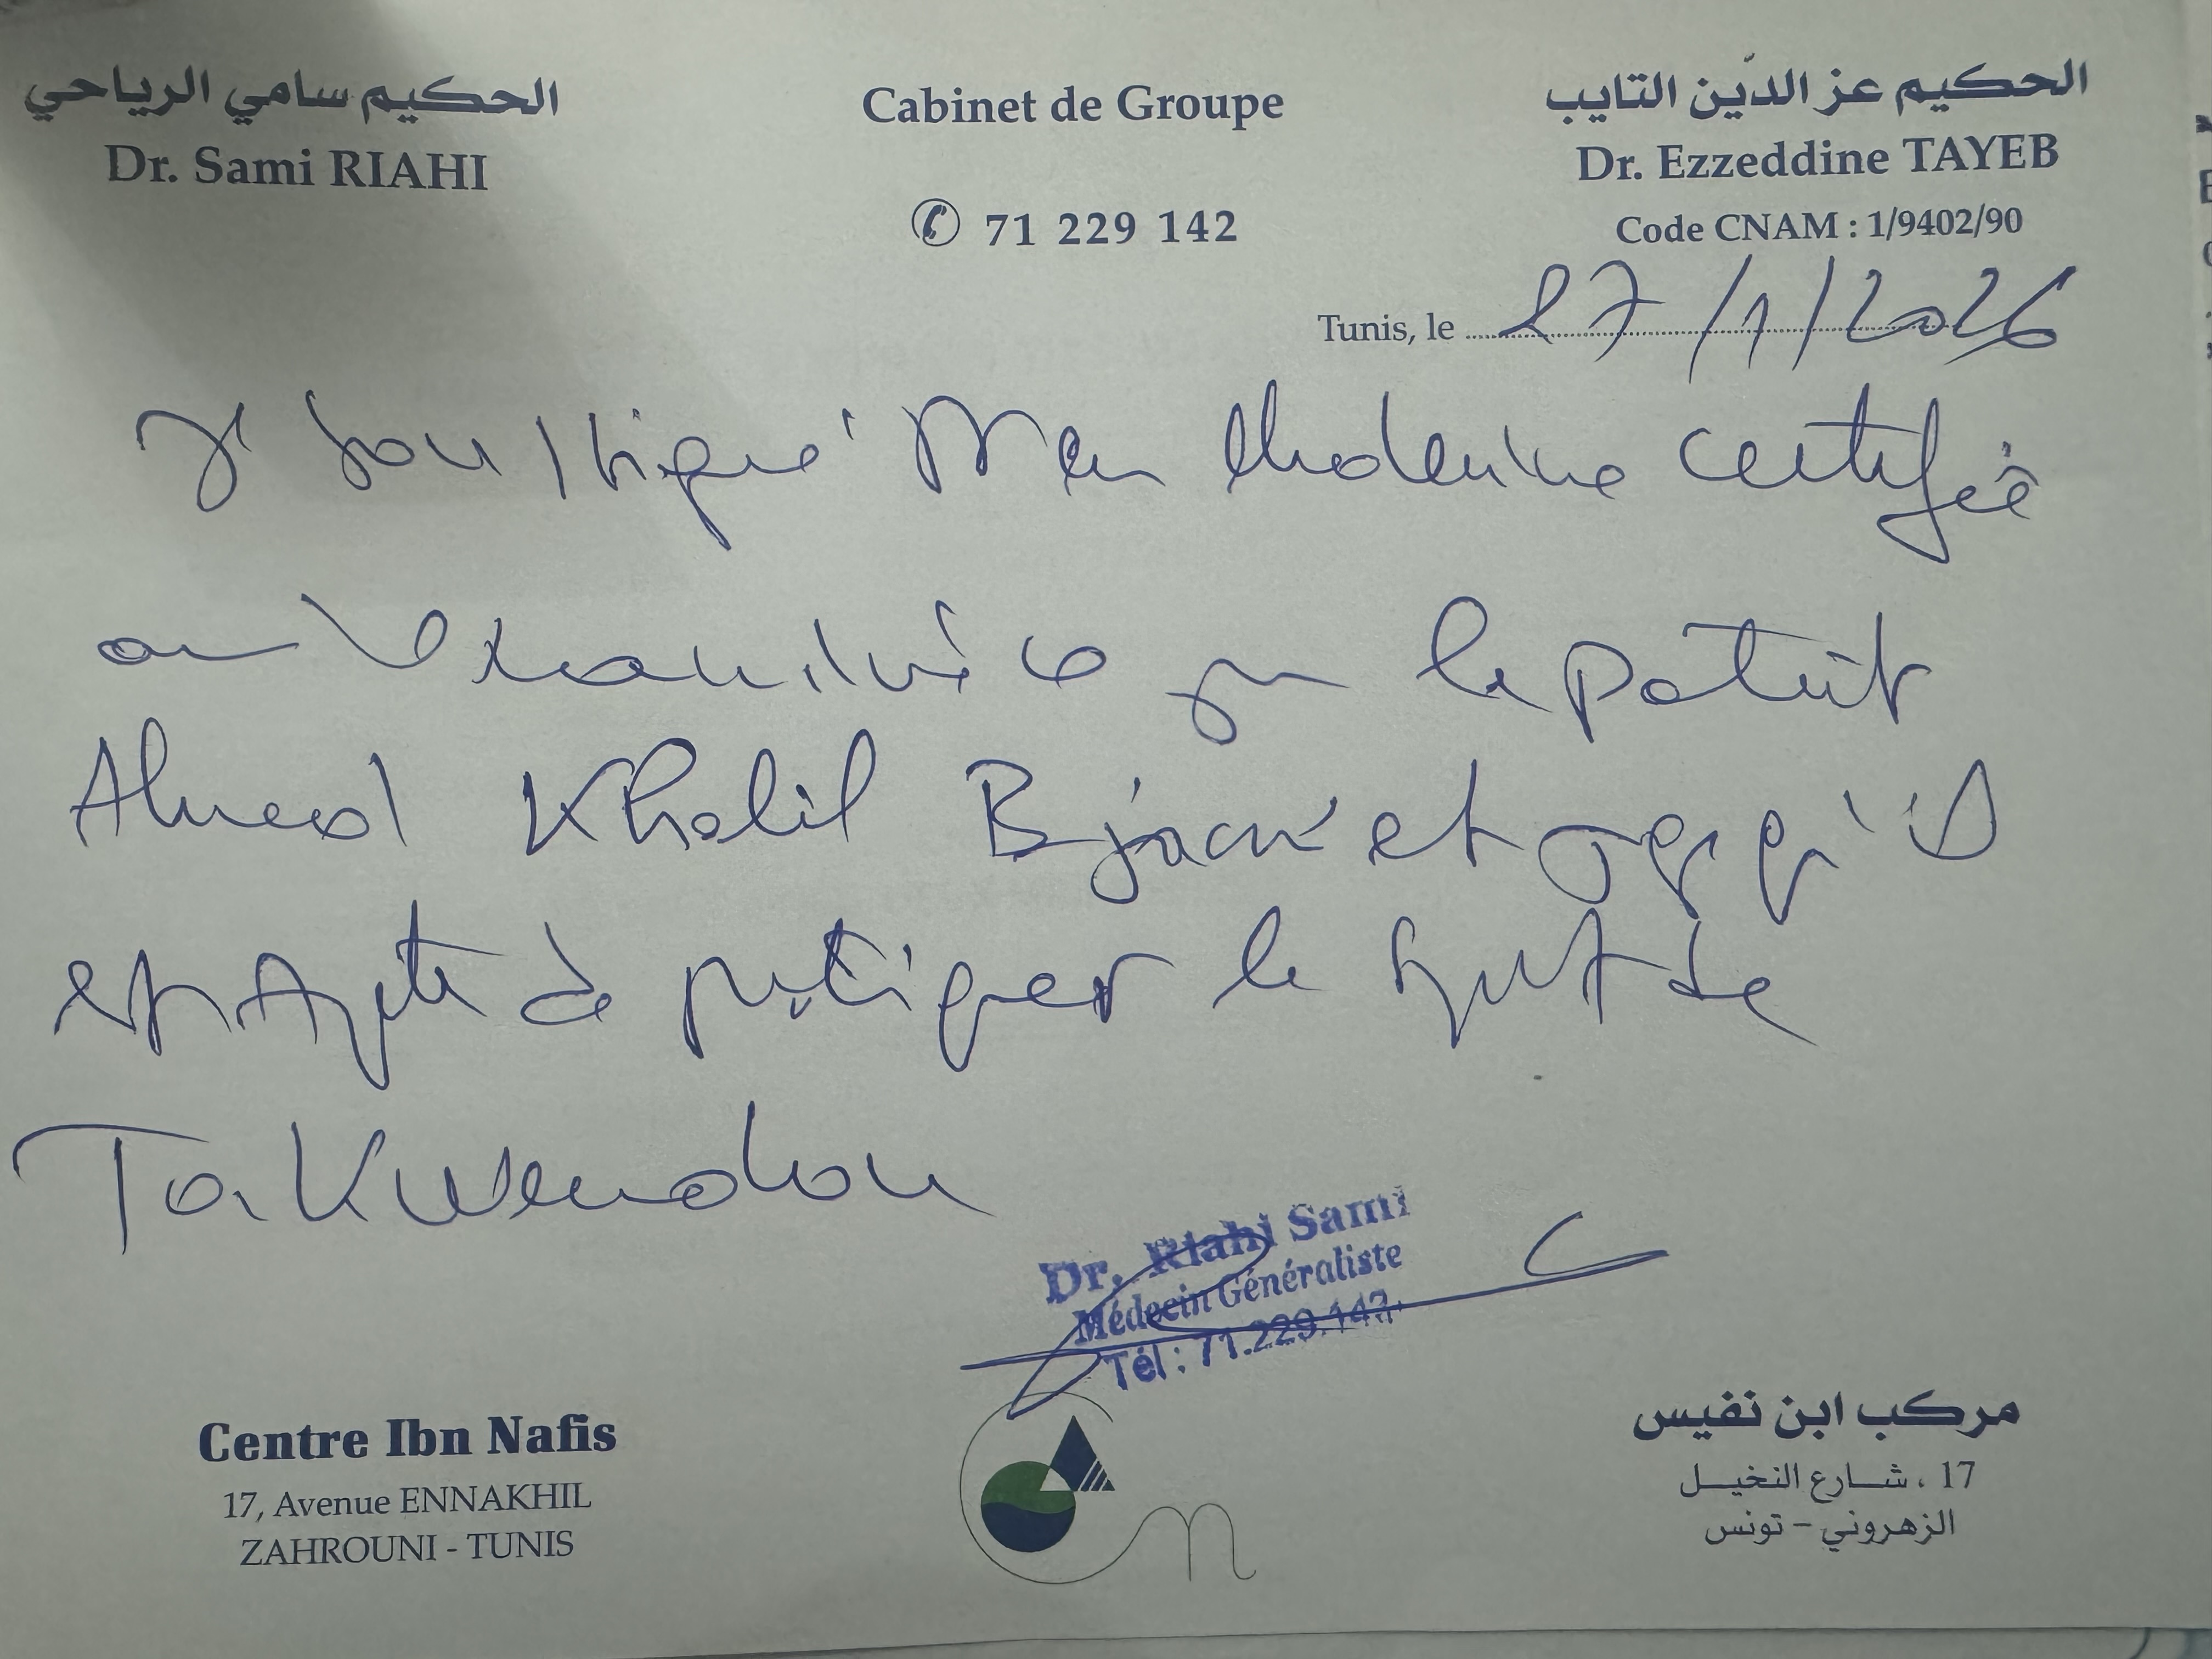 الحكيم سامي الرياحي
Dr. Sami RIAHI
Cabinet de Groupe
71 229 142
الحكيم عز الدّين التايب
Dr. Ezzeddine TAYEB
Code CNAM : 1/9402/90
Tunis, le 27/1/2026
certifie
le patient
Ahmed Khalil Bjaoui et
est Apte à pratiquer le sport de
Takwendou
Dr. Riahi Sami
Médecin Généraliste
Tél : 71.229.142
Centre Ibn Nafis
17, Avenue ENNAKHIL
ZAHROUNI - TUNIS
مركب ابن نفيس
17 ، شارع النخيل
الزهروني - تونس